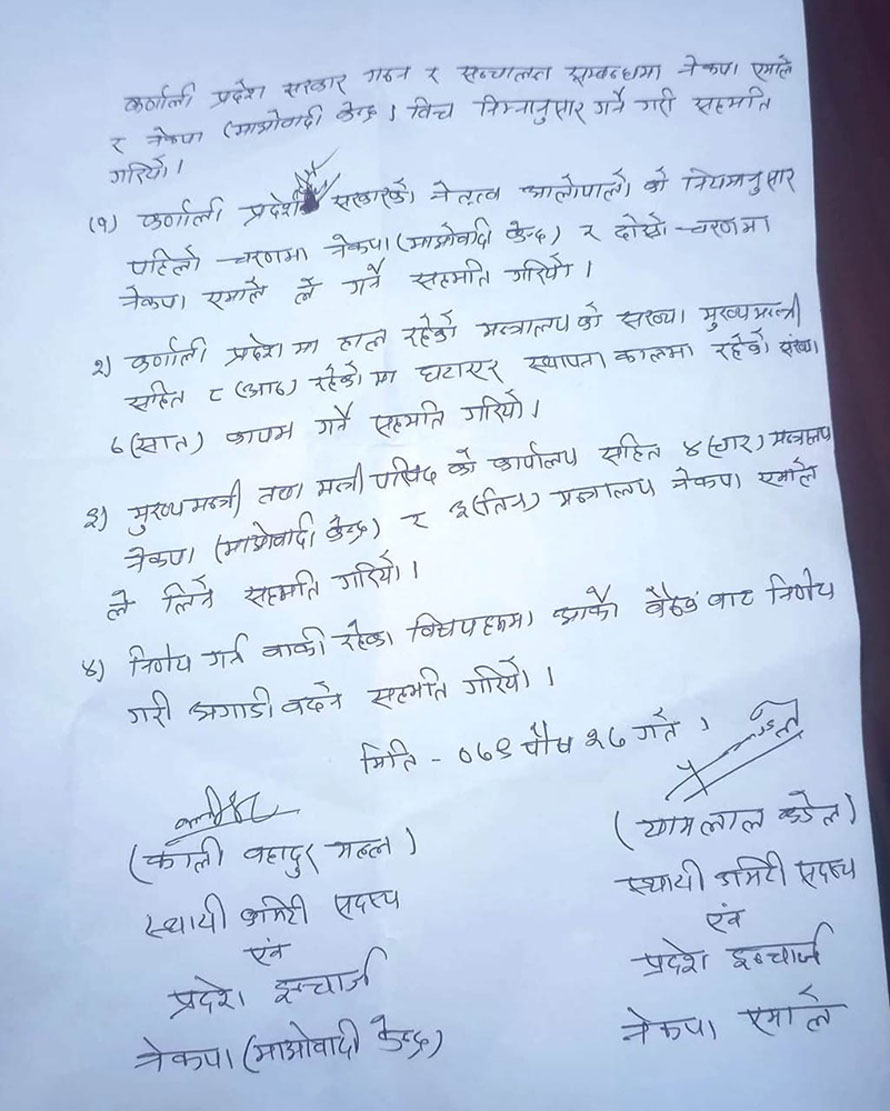 कर्णाली प्रदेश सरकार गठन र सञ्चालन सम्बन्धमा नेकपा एमाले
र नेकपा (माओवादी केन्द्र) विच निम्नानुसार गर्ने गरी सहमति
गरियो।
(१) कर्णाली प्रदेश सरकारको नेतृत्व आलोपालो को नियमानुसार
पहिलो चरणमा नेकपा (माओवादी केन्द्र) र दोस्रो चरणमा
नेकपा एमाले ले गर्ने सहमति गरियो।
२) कर्णाली प्रदेश मा हाल रहेको मन्त्रालय को संख्या मुख्यमन्त्री
सहित ८ (आठ) रहेको मा घटाएर स्थापना कालमा रहेको संख्या
७ (सात) कायम गर्ने सहमति गरियो।
३) मुख्यमन्त्री तथा मन्त्री परिषद को कार्यालय सहित ४ (चार) मन्त्रालय
नेकपा (माओवादी केन्द्र) र ३ (तिन) मन्त्रालय नेकपा एमाले
ले लिने सहमति गरियो।
४) निर्णय गर्न बाकी रहेका विषयहरूमा अर्को बैठक बाट निर्णय
गरी अगाडी बढ्ने सहमति गरियो।
मिति - ०७९ पौष २७ गते।
(काली बहादुर मल्ल)
स्थायी कमिटी सदस्य
एंव
प्रदेश इन्चार्ज
नेकपा (माओवादी केन्द्र)
(यामलाल कंडेल)
स्थायी कमिटी सदस्य
एंव
प्रदेश इन्चार्ज
नेकपा एमाले